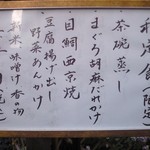 和定食（限定
茶碗蒸し
まぐろ胡麻だれかけ
目鯛西京焼
豆腐揚げ出し
野菜あんかけ
味噌汁 香の物